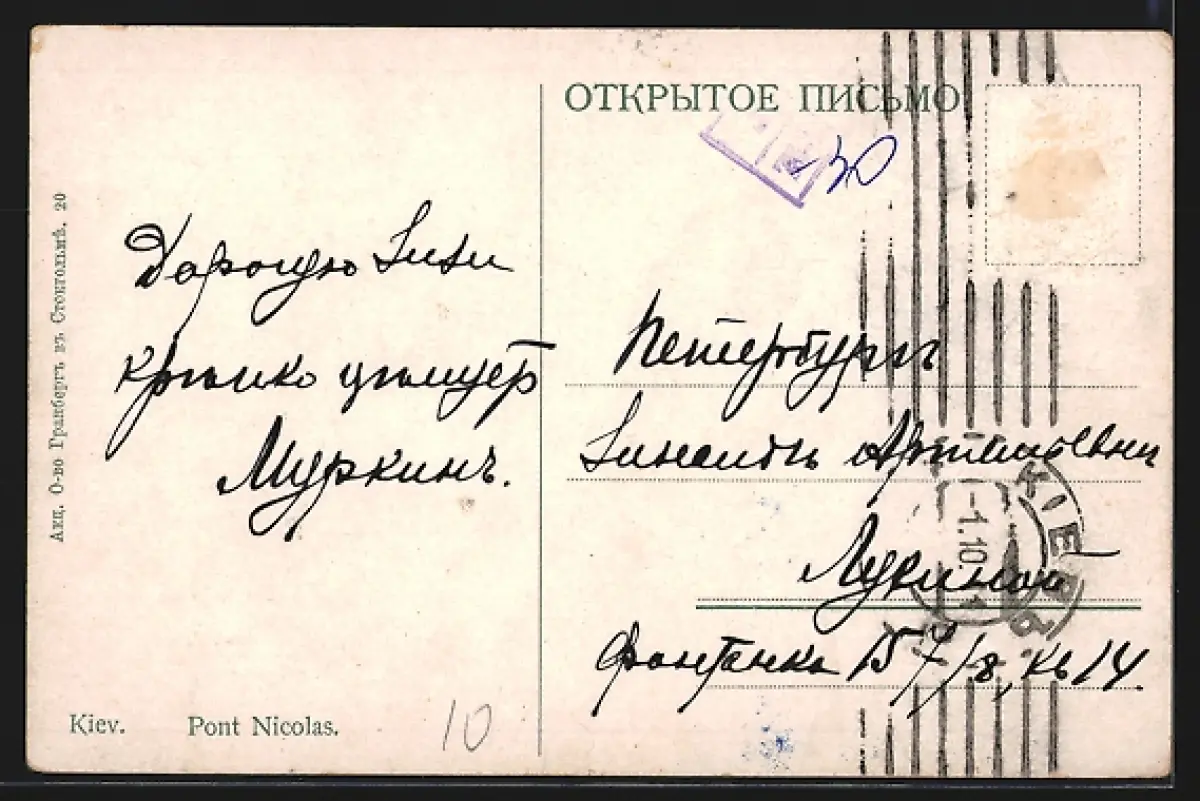 ОТКРЫТОЕ ПИСЬМО
30
Дорогую Зизи
крѣпко цѣлуетъ
Муркинъ.
Петербургъ
Зинаидѣ Артемьевнѣ
Лукиной
Фонтанка 157/8, кв 14.
КІЕВЪ
-1.10
Акц. О-во Гранбергъ въ Стокгольмѣ. 20
Kiev. Pont Nicolas.
10